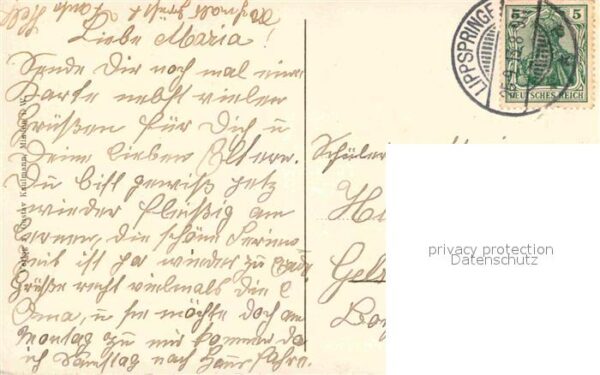 Liebe Maria!
Sende Dir noch mal eine
Karte nebst vielen
Grüßen für Dich u
Deine lieben Eltern.
Du bist gewiß jetz
wieder fleißig am
lernen, die schöne Ferien
zeit ist ja wieder zu Ende.
Grüße recht vielmals die l
Oma, u sie möchte doch am
Montag zu mir kommen da
ich Samstag nach Haus fahre.
Nochmals grüßt Tante
LIPPSPRINGE
5 5
DEUTSCHES REICH
Schüler
Gels
privacy protection
Datenschutz